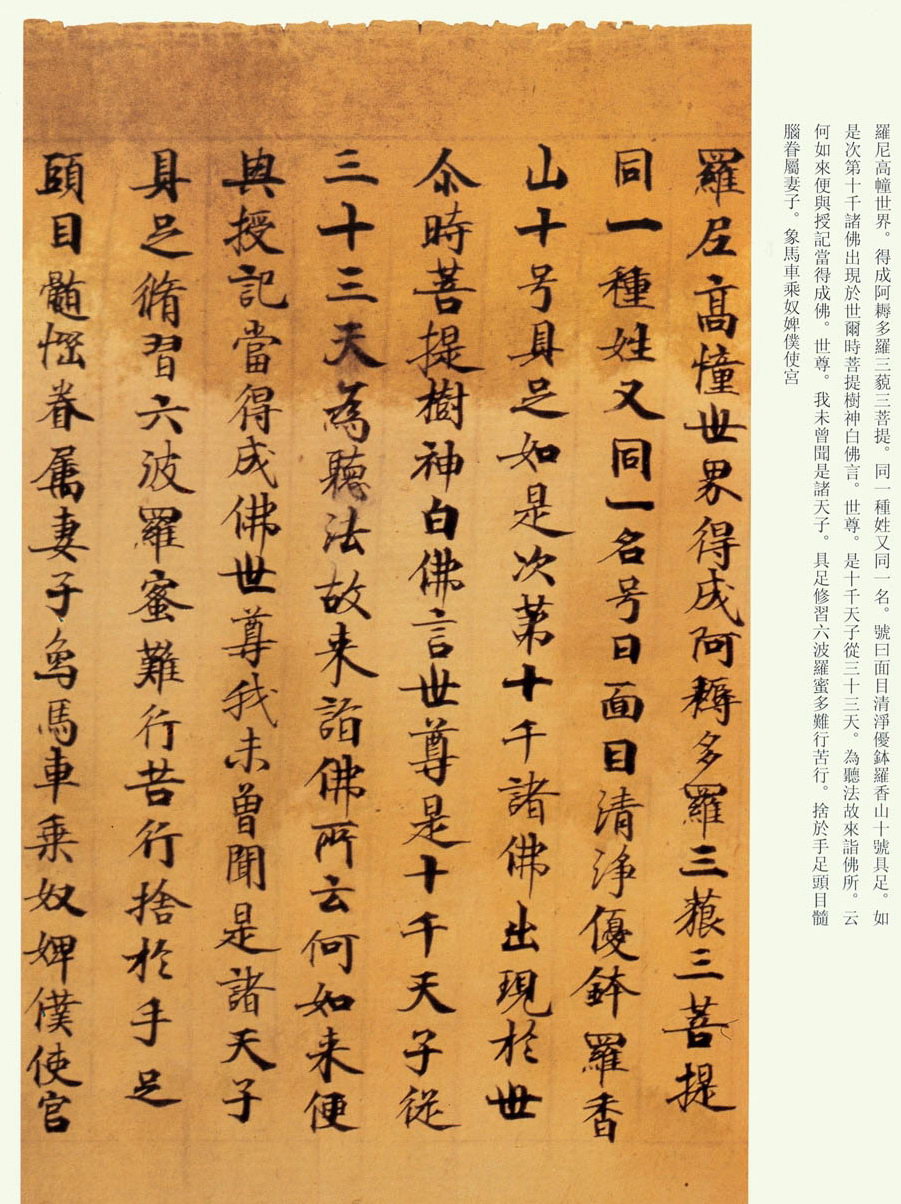 羅尼高幢世界。得成阿耨多羅三藐三菩提。同一種姓又同一名。號曰面目清淨優鉢羅香山十號具足。如
是次第十千諸佛出現於世爾時菩提樹神白佛言。世尊。是十千天子從三十三天。為聽法故來詣佛所。云
何如來便與授記當得成佛。世尊。我未曾聞是諸天子。具足修習六波羅蜜多難行苦行。捨於手足頭目髓
腦眷屬妻子。象馬車乘奴婢僕使宮
羅尼高幢世界得成阿耨多羅三藐三菩提
同一種姓又同一名号曰面目清淨優鉢羅香
山十号具足如是次第十千諸佛出現於世
尒時菩提樹神白佛言世尊是十千天子從
三十三天為聽法故来詣佛所云何如来便
與授記當得成佛世尊我未曾聞是諸天子
具足脩習六波羅蜜難行苦行捨於手足
頭目髓𢙉眷屬妻子象馬車乘奴婢僕使宮